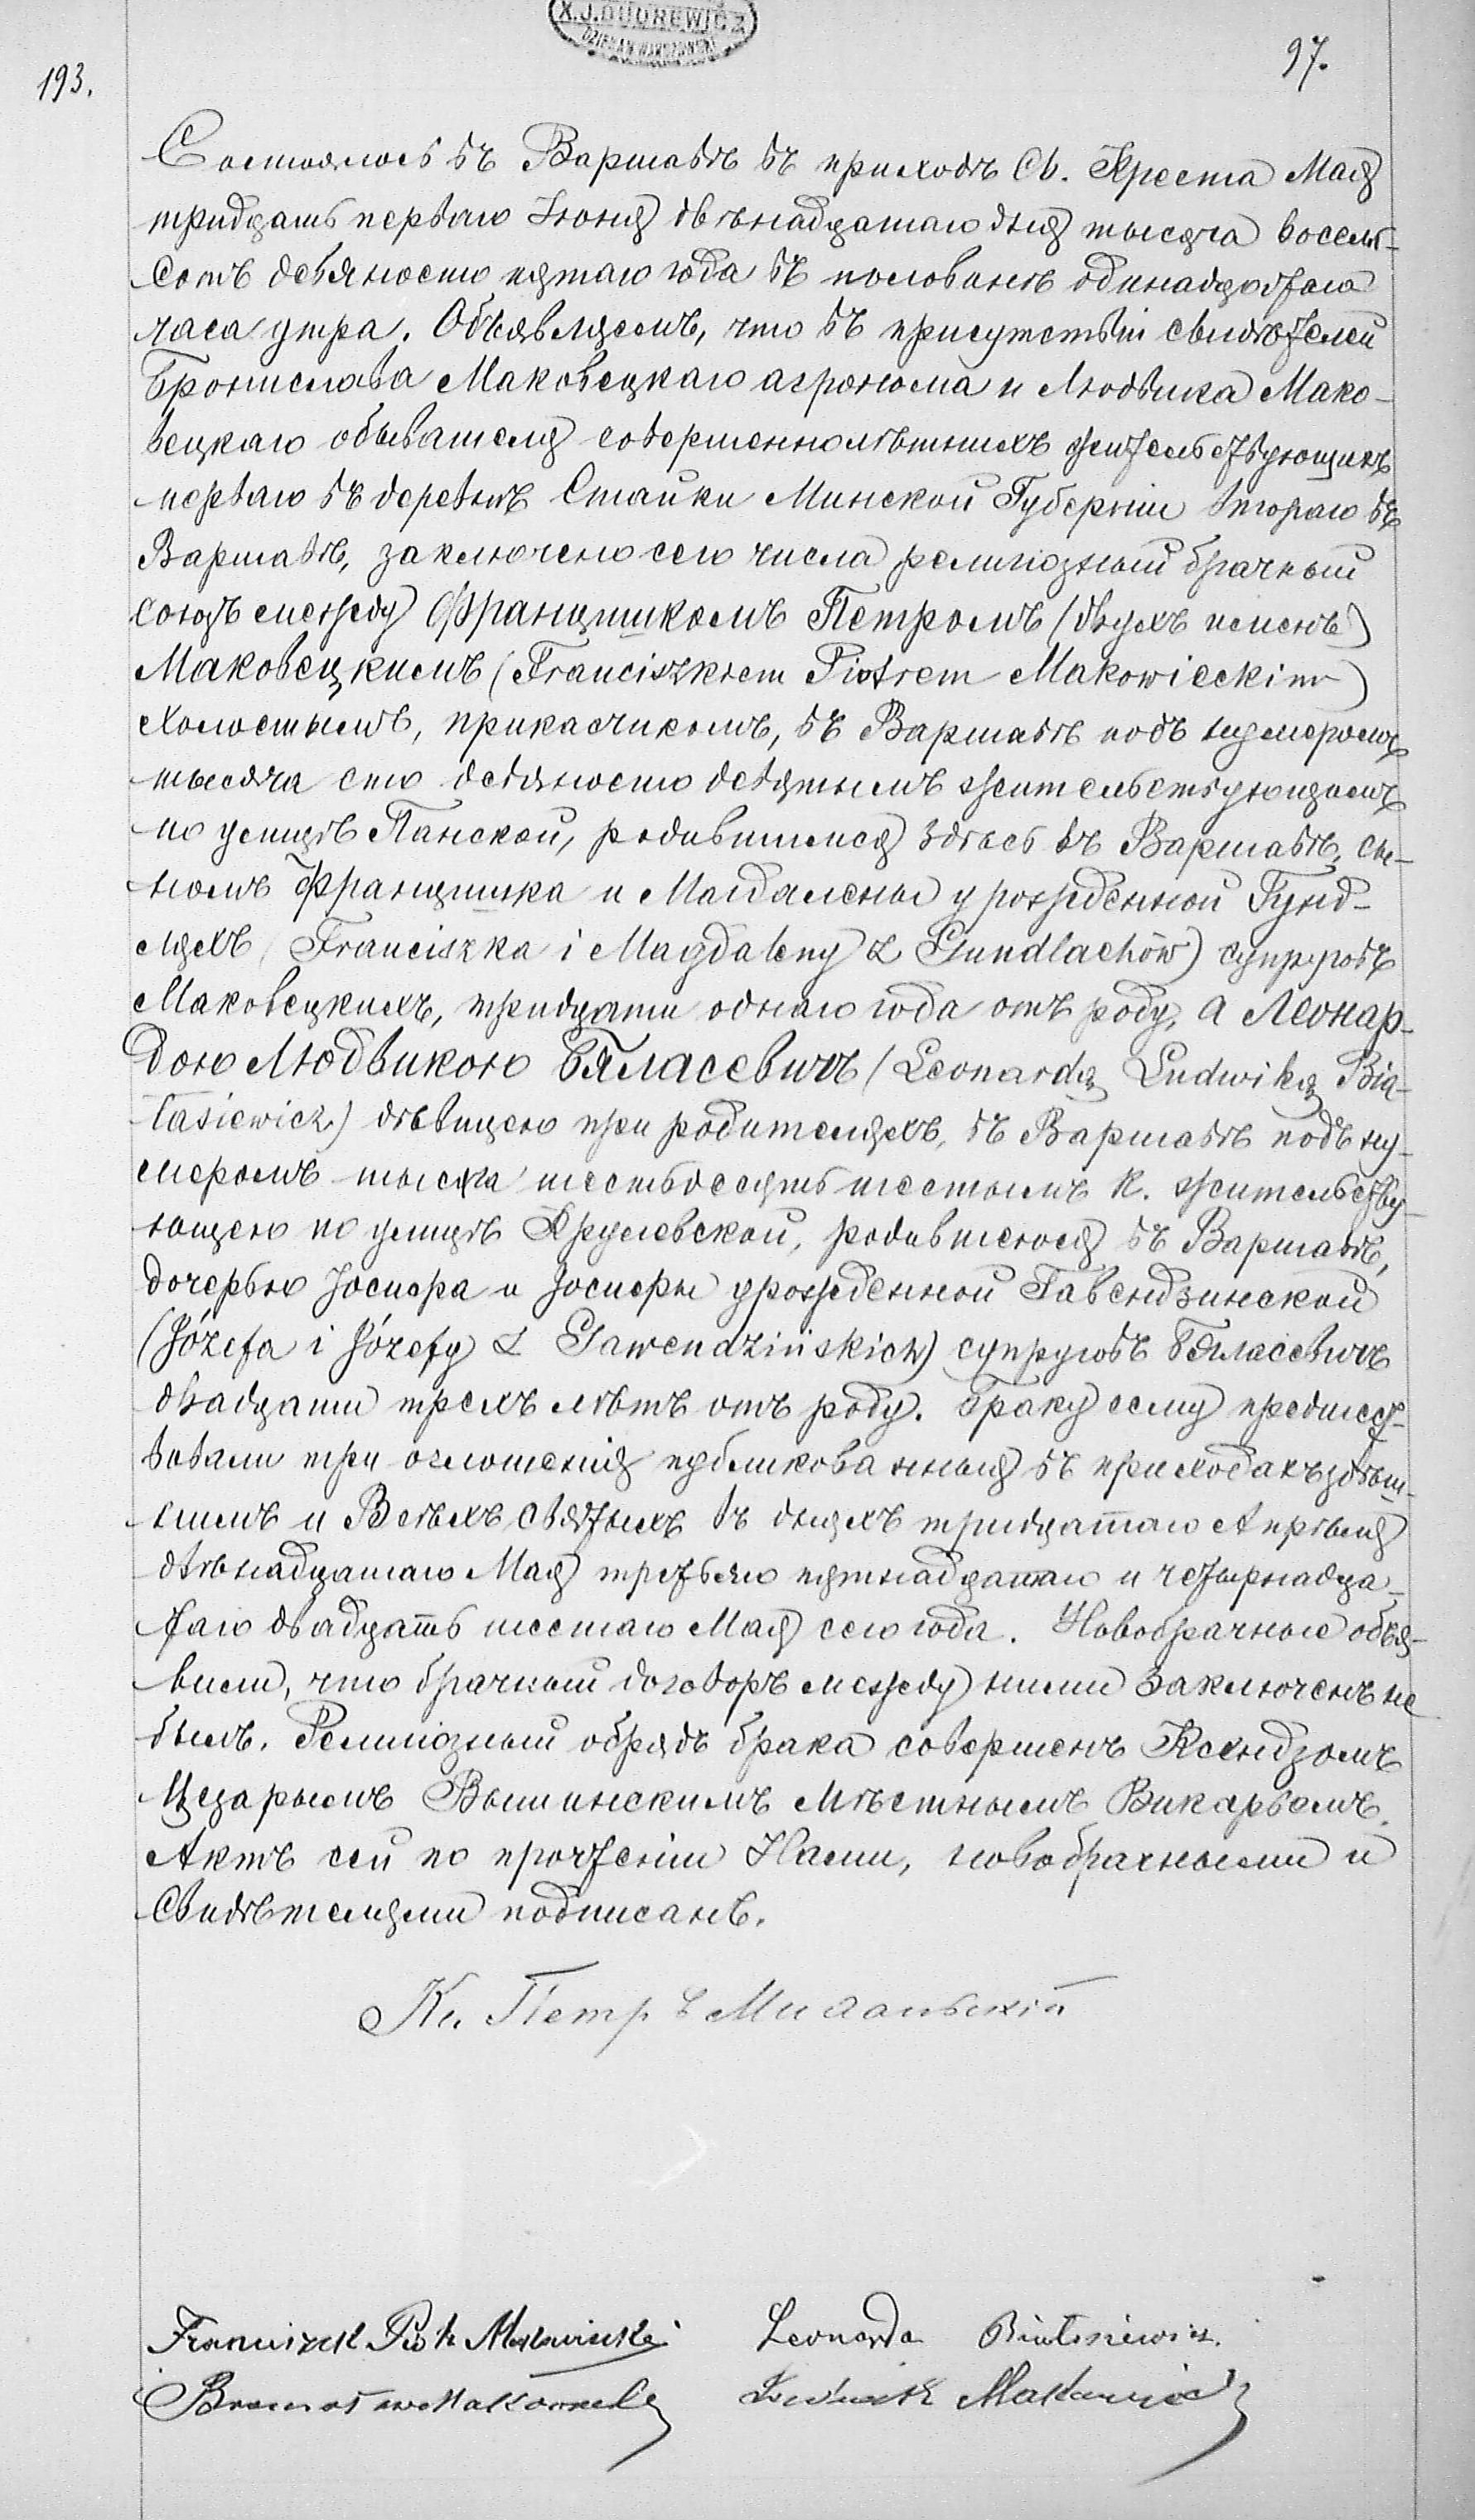 X.J.DUDREWICZ
97.
193.
Состоялось въ Варшавѣ въ приходѣ Св. Креста Мая
тридцать перваго Іюня двѣнадцатаго дня тысяча восемь-
сотъ девяносто пятаго года въ половинѣ одинадцатаго
часа утра. Объявляемъ, что въ присутствіи свидѣтелей
Бронислава Маковецкаго агронома и Людвика Мако-
вецкаго обывателя совершеннолѣтнихъ жительствующихъ
перваго въ деревнѣ Стайки Минской Губерніи втораго въ
Варшавѣ, заключено сего числа религіозный брачный
союзъ между Францишкомъ Петромъ (двухъ именъ)
Маковецкимъ (Franciszkiem Piotrem Makowieckim)
холостымъ, прикащикомъ, въ Варшавѣ подъ нумеромъ
тысяча сто девяносто девятымъ жительствующимъ
по улицѣ Панской, родившимся здѣсь въ Варшавѣ, сы-
номъ Францишка и Магдалены урожденной Гунд-
ляхъ (Franciszka i Magdaleny z Gundlachów) супруговъ
Маковецкихъ, тридцати одного года отъ роду, а Леонар-
дою Людвикою Бяласевичъ (Leonardą Ludwiką Bia-
łasiewicz) дѣвицею при родителяхъ, въ Варшавѣ подъ ну-
меромъ тысяча шестьдесятъ шестымъ к. жительству-
ющею по улицѣ Крулевской, родившеюся въ Варшавѣ,
дочерью Іосифа и Іосифы урожденной Гавендзинской
(Józefa i Józefy z Gawendzińskich) супруговъ Бяласевичъ
двадцати трехъ лѣтъ отъ роду. Браку сему предшест-
вовали три оглошенія публикованныя въ приходахъ здѣш-
нимъ и Всѣхъ Святыхъ въ дняхъ тридцатаго Апрѣля
двѣнадцатаго Мая третьяго пятнадцатаго и четырнадца-
таго двадцать шестаго Мая сего года. Новобрачные объя-
вили, что брачный договоръ между ними заключенъ не
былъ. Религіозный обрядъ брака совершенъ Ксендзомъ
Цезарымъ Вышинскимъ Мѣстнымъ Викарьемъ.
Актъ сей по прочтеніи Нами, новобрачными и
Свидѣтелями подписанъ.
Кс. Петръ
Franciszek Piotr Makowiecki Leonarda Białasiewicz.
Bronisław Makowiecki Ludwik Makowiecki